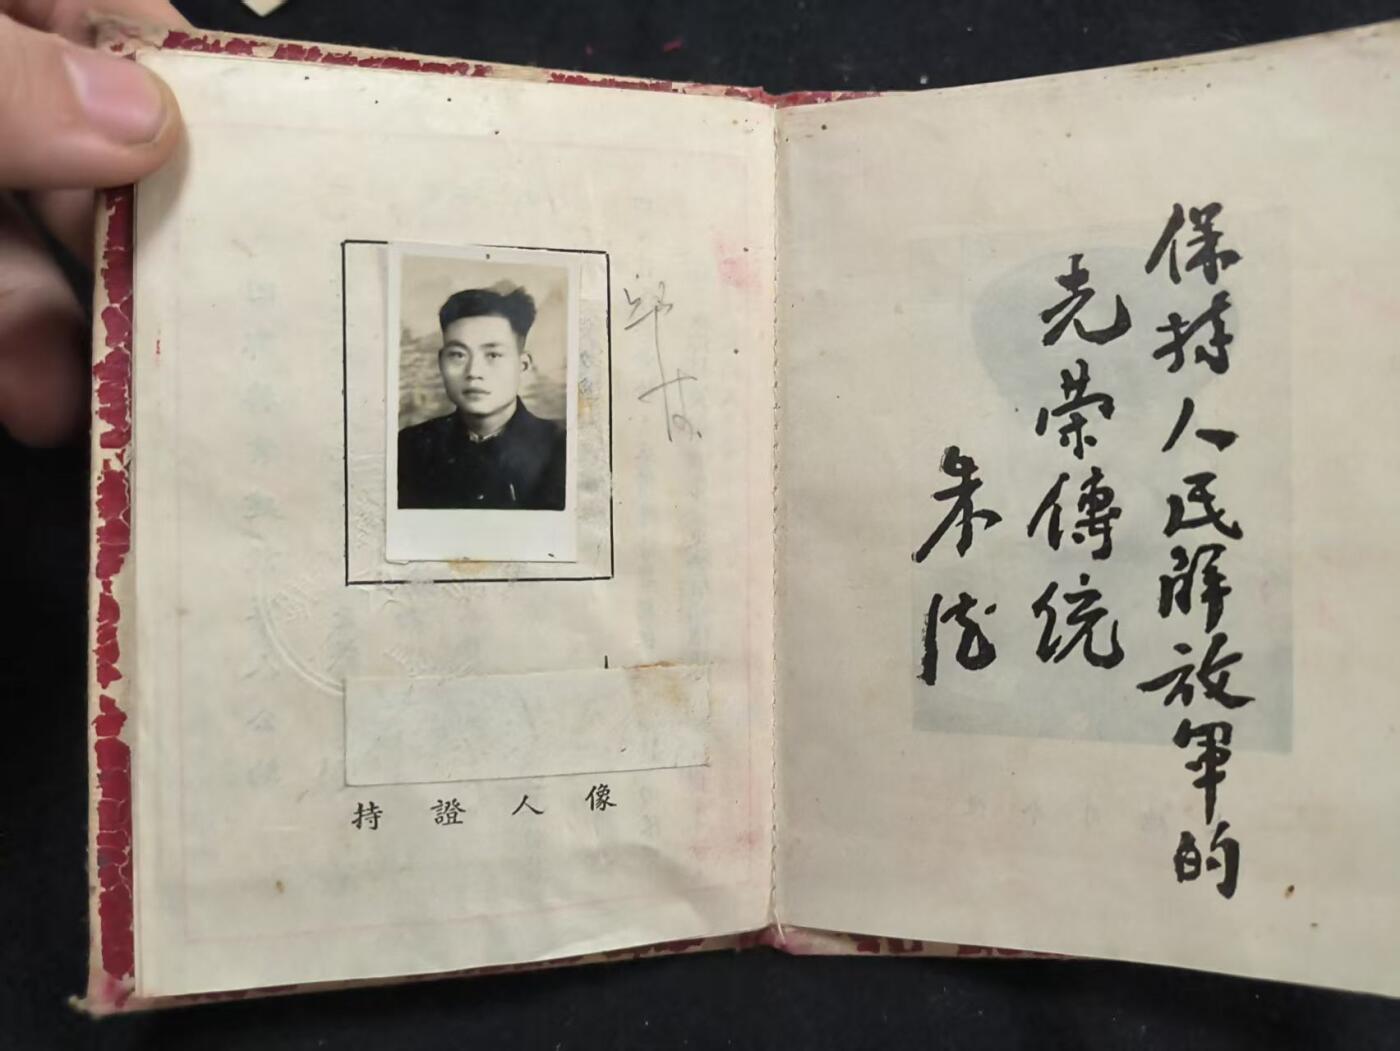 持證人像
保持人民解放軍的
光荣傳统
朱德